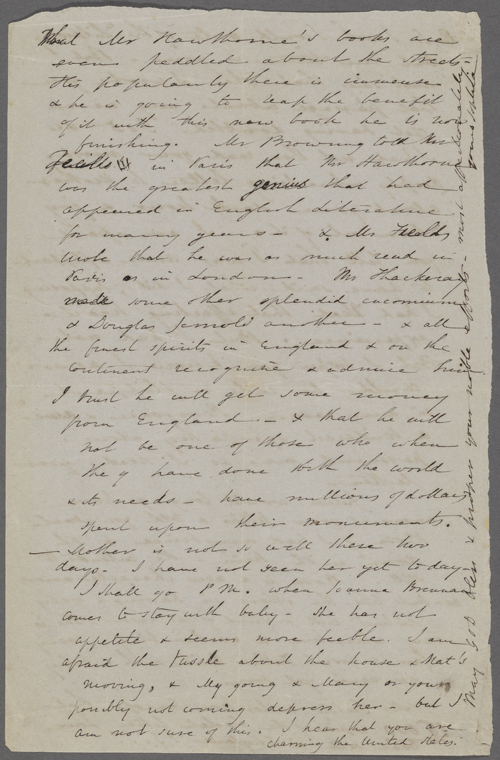 that Mr Hawthorne's books are
even peddled about the streets-
His popularity there is immense
& he is going to reap the benefit
of it with this new book he is now
finishing. Mr Browning told Mr
Fields in Paris that Mr Hawthorne
was the greatest genius that had
appeared in English Literature
for many years- & Mr Fields
wrote that he was as much read in
Paris as in London- Mr Thackeray
made some other splendid encomiums
& Douglas Jerrold another- & all
the finest spirits in England & on the
Continent recognize & admire him
I trust he will get some money
from England- & that he will
not be one of those who when
they have done with the world
& its needs- have millions of dollars
spent upon their monuments.
- Mother is not so well these two
days. I have not seen her yet to day-
I shall go P.M. when Joanna Brennan
comes to stay with baby- She has not
appetite & seems more feeble. I am
afraid the tussle about the house & Nat's
moving, & my going & Mary or your
possibly not coming depress her- but I
am not sure of this. I hear that you are
charming the United States.
May God bless & prosper your noble efforts- most affectionately
yours